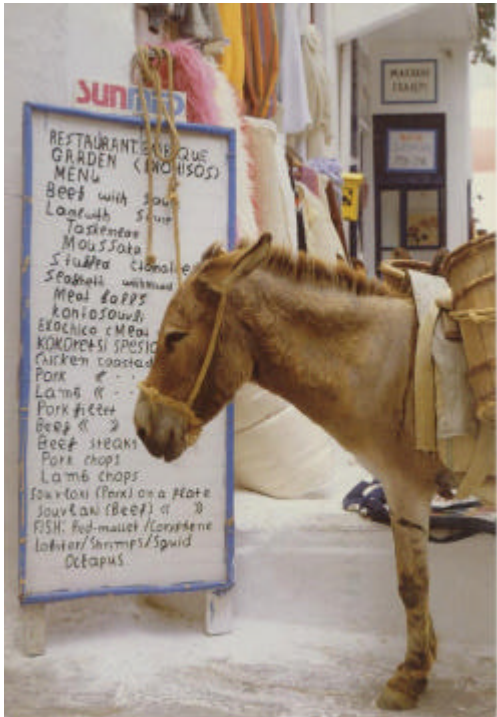 sunmed
RESTAURANT BARBEQUE
GARDEN (EXOHISOS)
MENU
Beef with sauce
Lamb with sauce
Moussaka
Stuffed tomatoe
Spaghetti with
Meat balls
Kontosouvli
Exochico (Meat
KOKORETSI SPESIA
Chicken roasted
Pork " - -
Lamb " - -
Pork fillet
Beef " "
Beef steaks
Pork chops
Lamb chops
Souvlaki (Pork) on a plate
Souvlaki (Beef) " "
FISH: Red-mullet / Coryphene
Lobster / Shrimps / Squid
Octapus